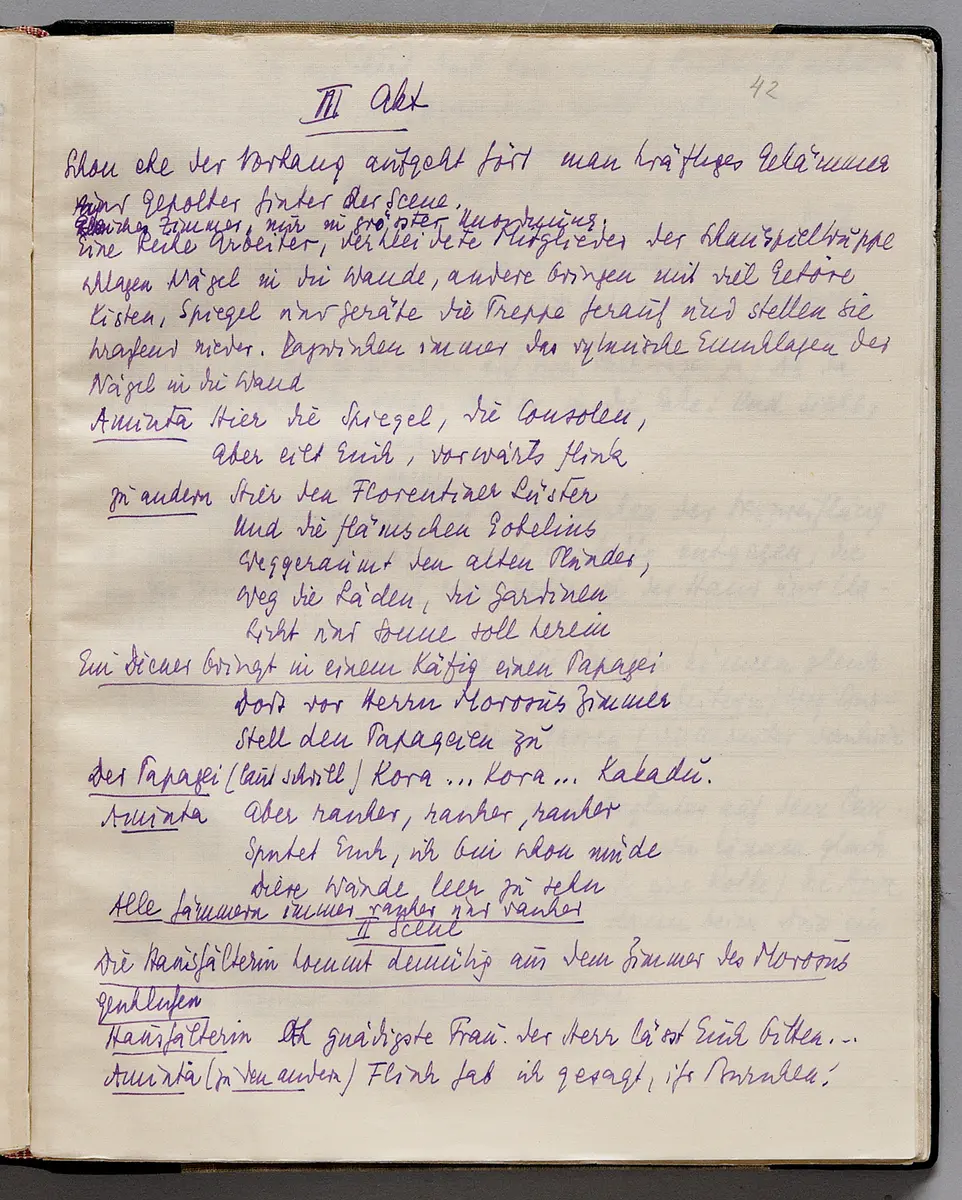 42
III Akt
Schon ehe der Vorhang aufgeht hört man kräftiges Gehämmer
und Gepolter hinter der Scene.
Gleiches Zimmer, nur in grösster Unordnung.
Eine Reihe Arbeiter, verkleidete Mitglieder der Schauspieltruppe
schlagen Nägel in die Wände, andere bringen mit viel Getöse
Kisten, Spiegel und Geräte die Treppe herauf und stellen sie
krachend nieder. Dazwischen immer das rytmische Einschlagen der
Nägel in die Wand
Aminta Hier die Spiegel, die Consolen,
Aber eilt Euch, vorwärts flink
zu andern Hier den Florentiner Lüster
Und die flämischen Gobelins
Weggeräumt den alten Plunder,
Weg die Läden, die Gardinen
Licht und Sonne soll herein
Ein Diener bringt in einem Käfig einen Papagei
Dort vor Herrn Morosus Zimmer
Stell den Papageien zu
Der Papagei (laut schrill) Kora ... Kora ... Kakadu.
Aminta Aber rascher, rascher, rascher
Sputet Euch, ich bin schon müde
Diese Wände leer zu sehn
Alle hämmern immer rascher und rascher
II Scene
Die Haushälterin kommt demütig aus dem Zimmer des Morosus
geschlichen
Haushälterin Oh gnädigste Frau. der Herr lässt Euch bitten...
Aminta (zu den andern) Flink hab ich gesagt, ihr Burschen!